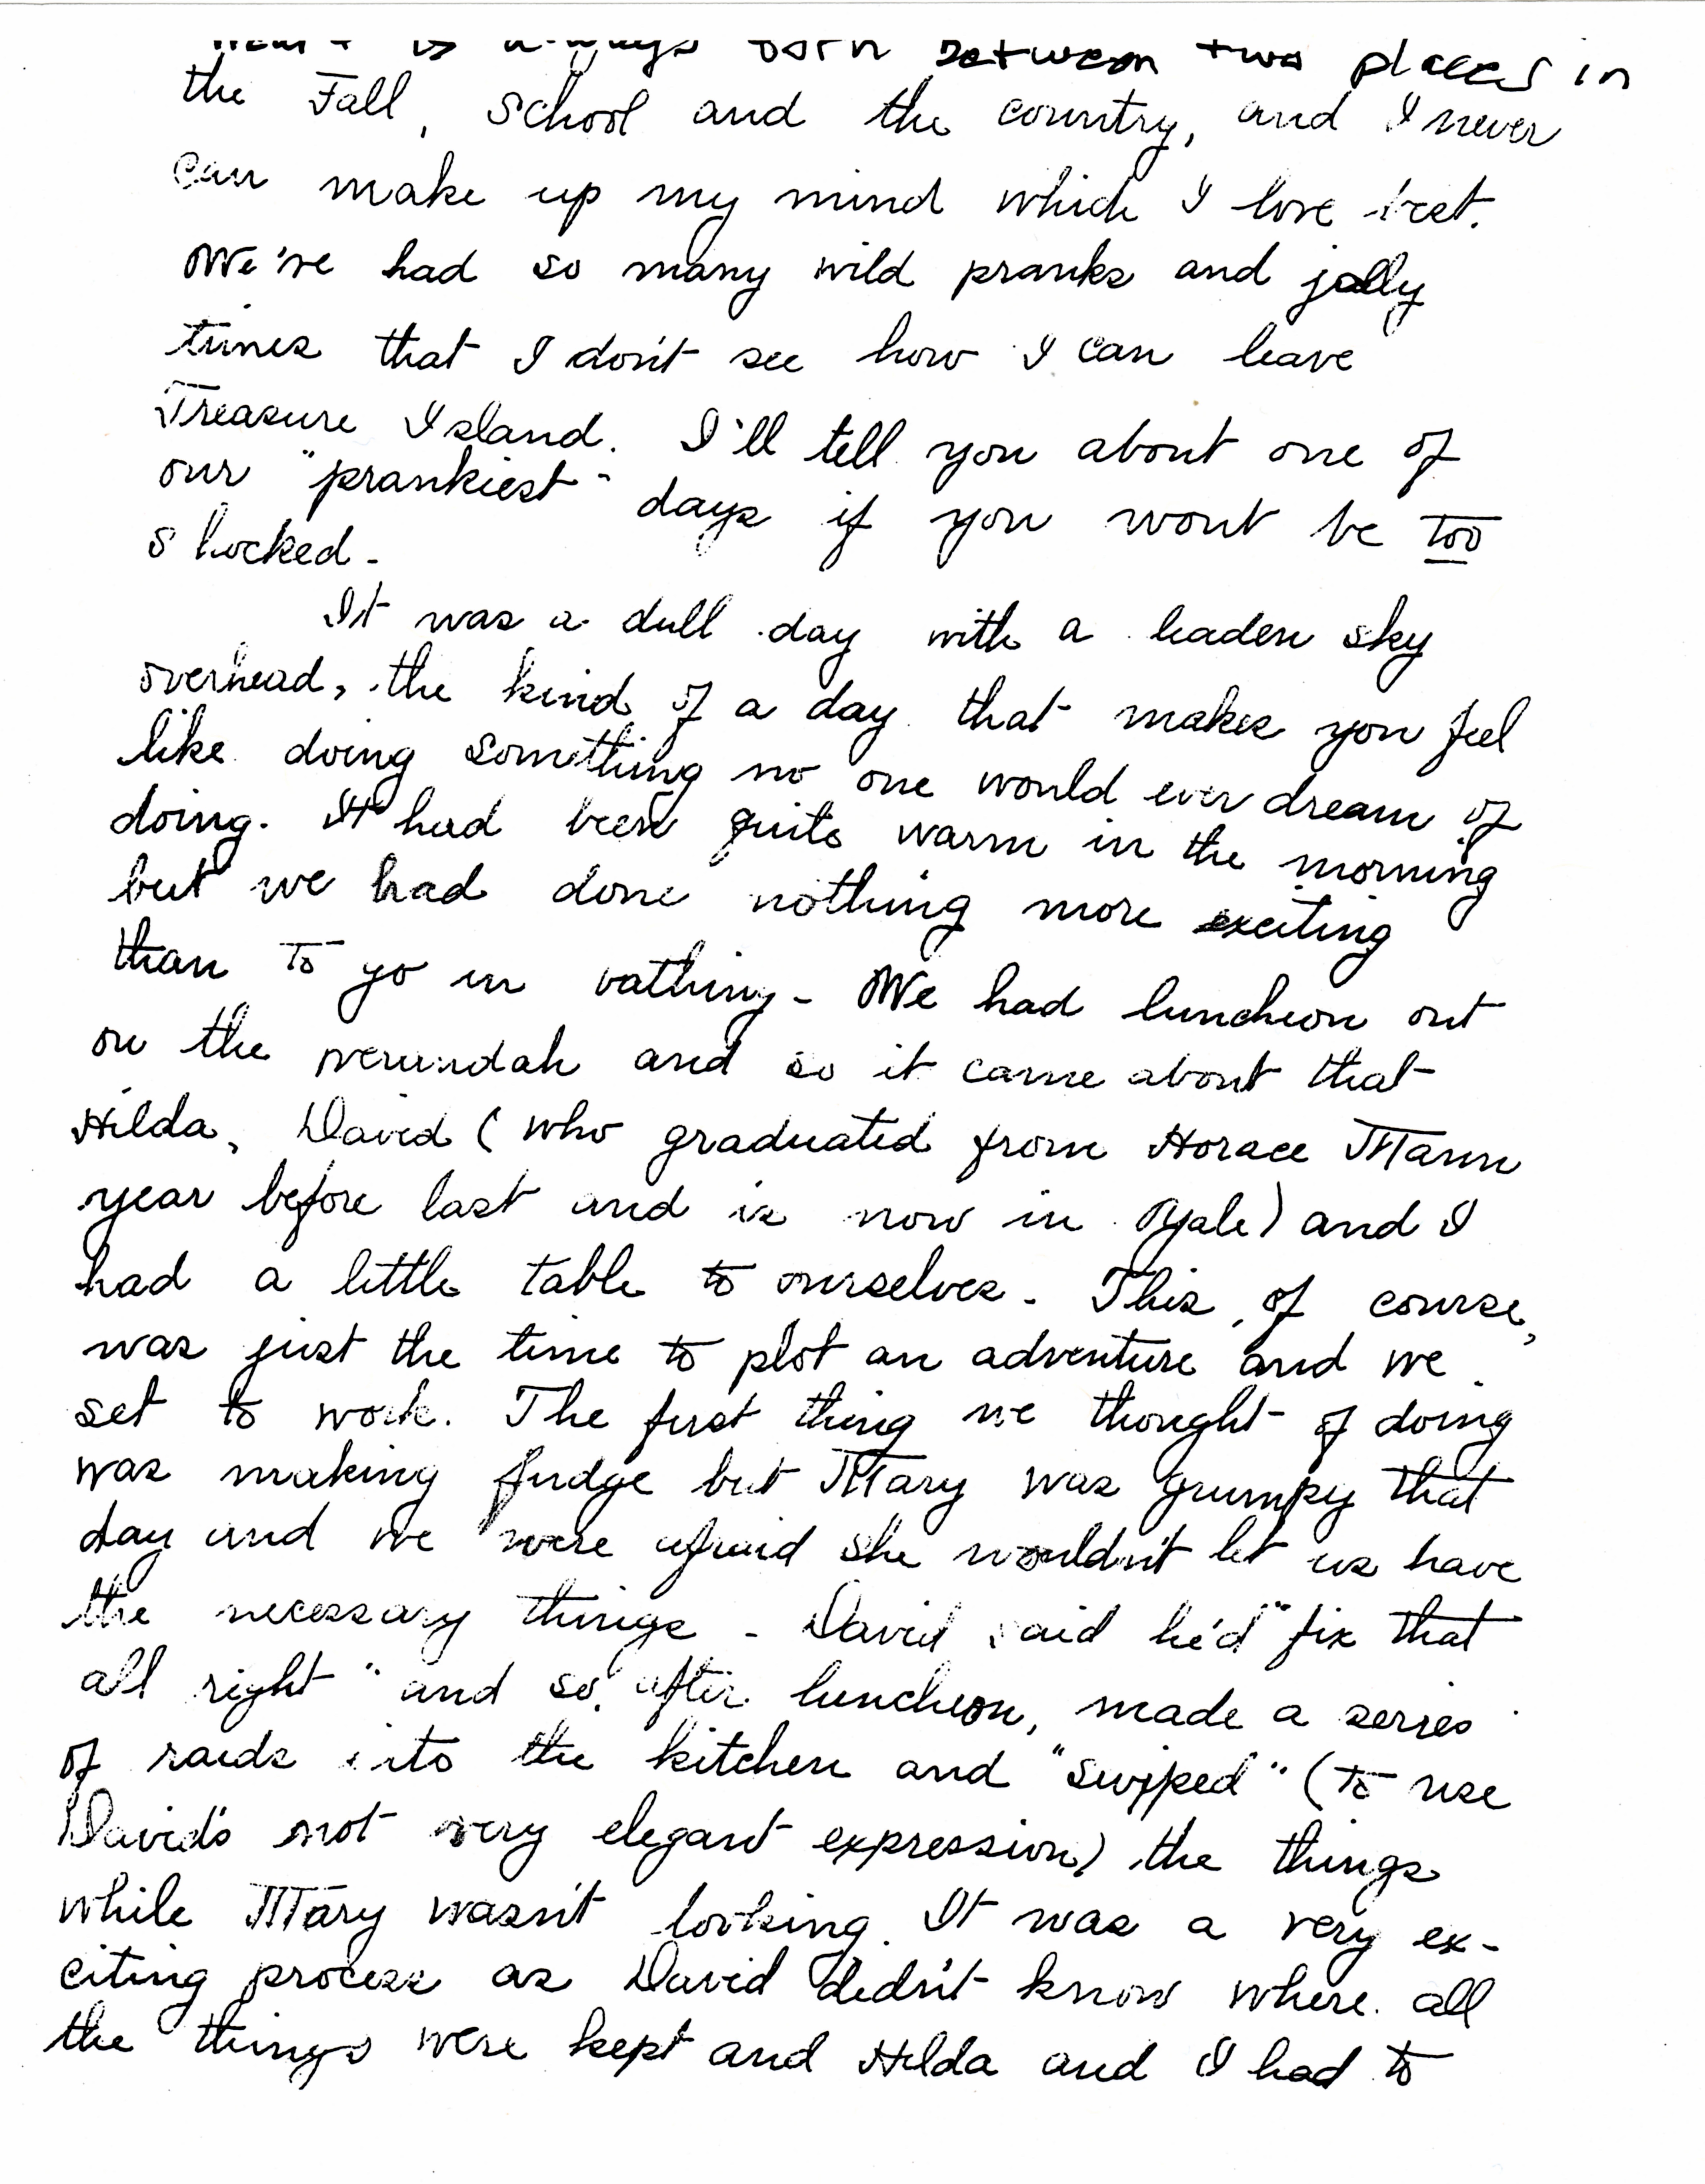 is always torn between two places in
the Fall, School and the country, and I never
can make up my mind which I love best.
We've had so many wild pranks and jolly
times that I don't see how I can leave
Treasure Island. I'll tell you about one of
our "prankiest" days if you wont be too
shocked.
It was a dull day with a leaden sky
overhead, the kind of a day that makes you feel
like doing something no one would ever dream of
doing. It had been quite warm in the morning
but we had done nothing more exciting
than to go in bathing - We had luncheon out
on the verandah and so it came about that
Hilda, David (who graduated from Horace Mann
year before last and is now in Yale) and I
had a little table to ourselves. This, of course,
was just the time to plot an adventure and we
set to work. The first thing we thought of doing
was making fudge but Mary was grumpy that
day and we were afraid she wouldn't let us have
the necessary things - David said he'd "fix that
all right" and so, after luncheon, made a series
of raids into the kitchen and "swiped" (to use
David's not very elegant expression) the things
while Mary wasn't looking. It was a very ex-
citing process as David didn't know where all
the things were kept and Hilda and I had to